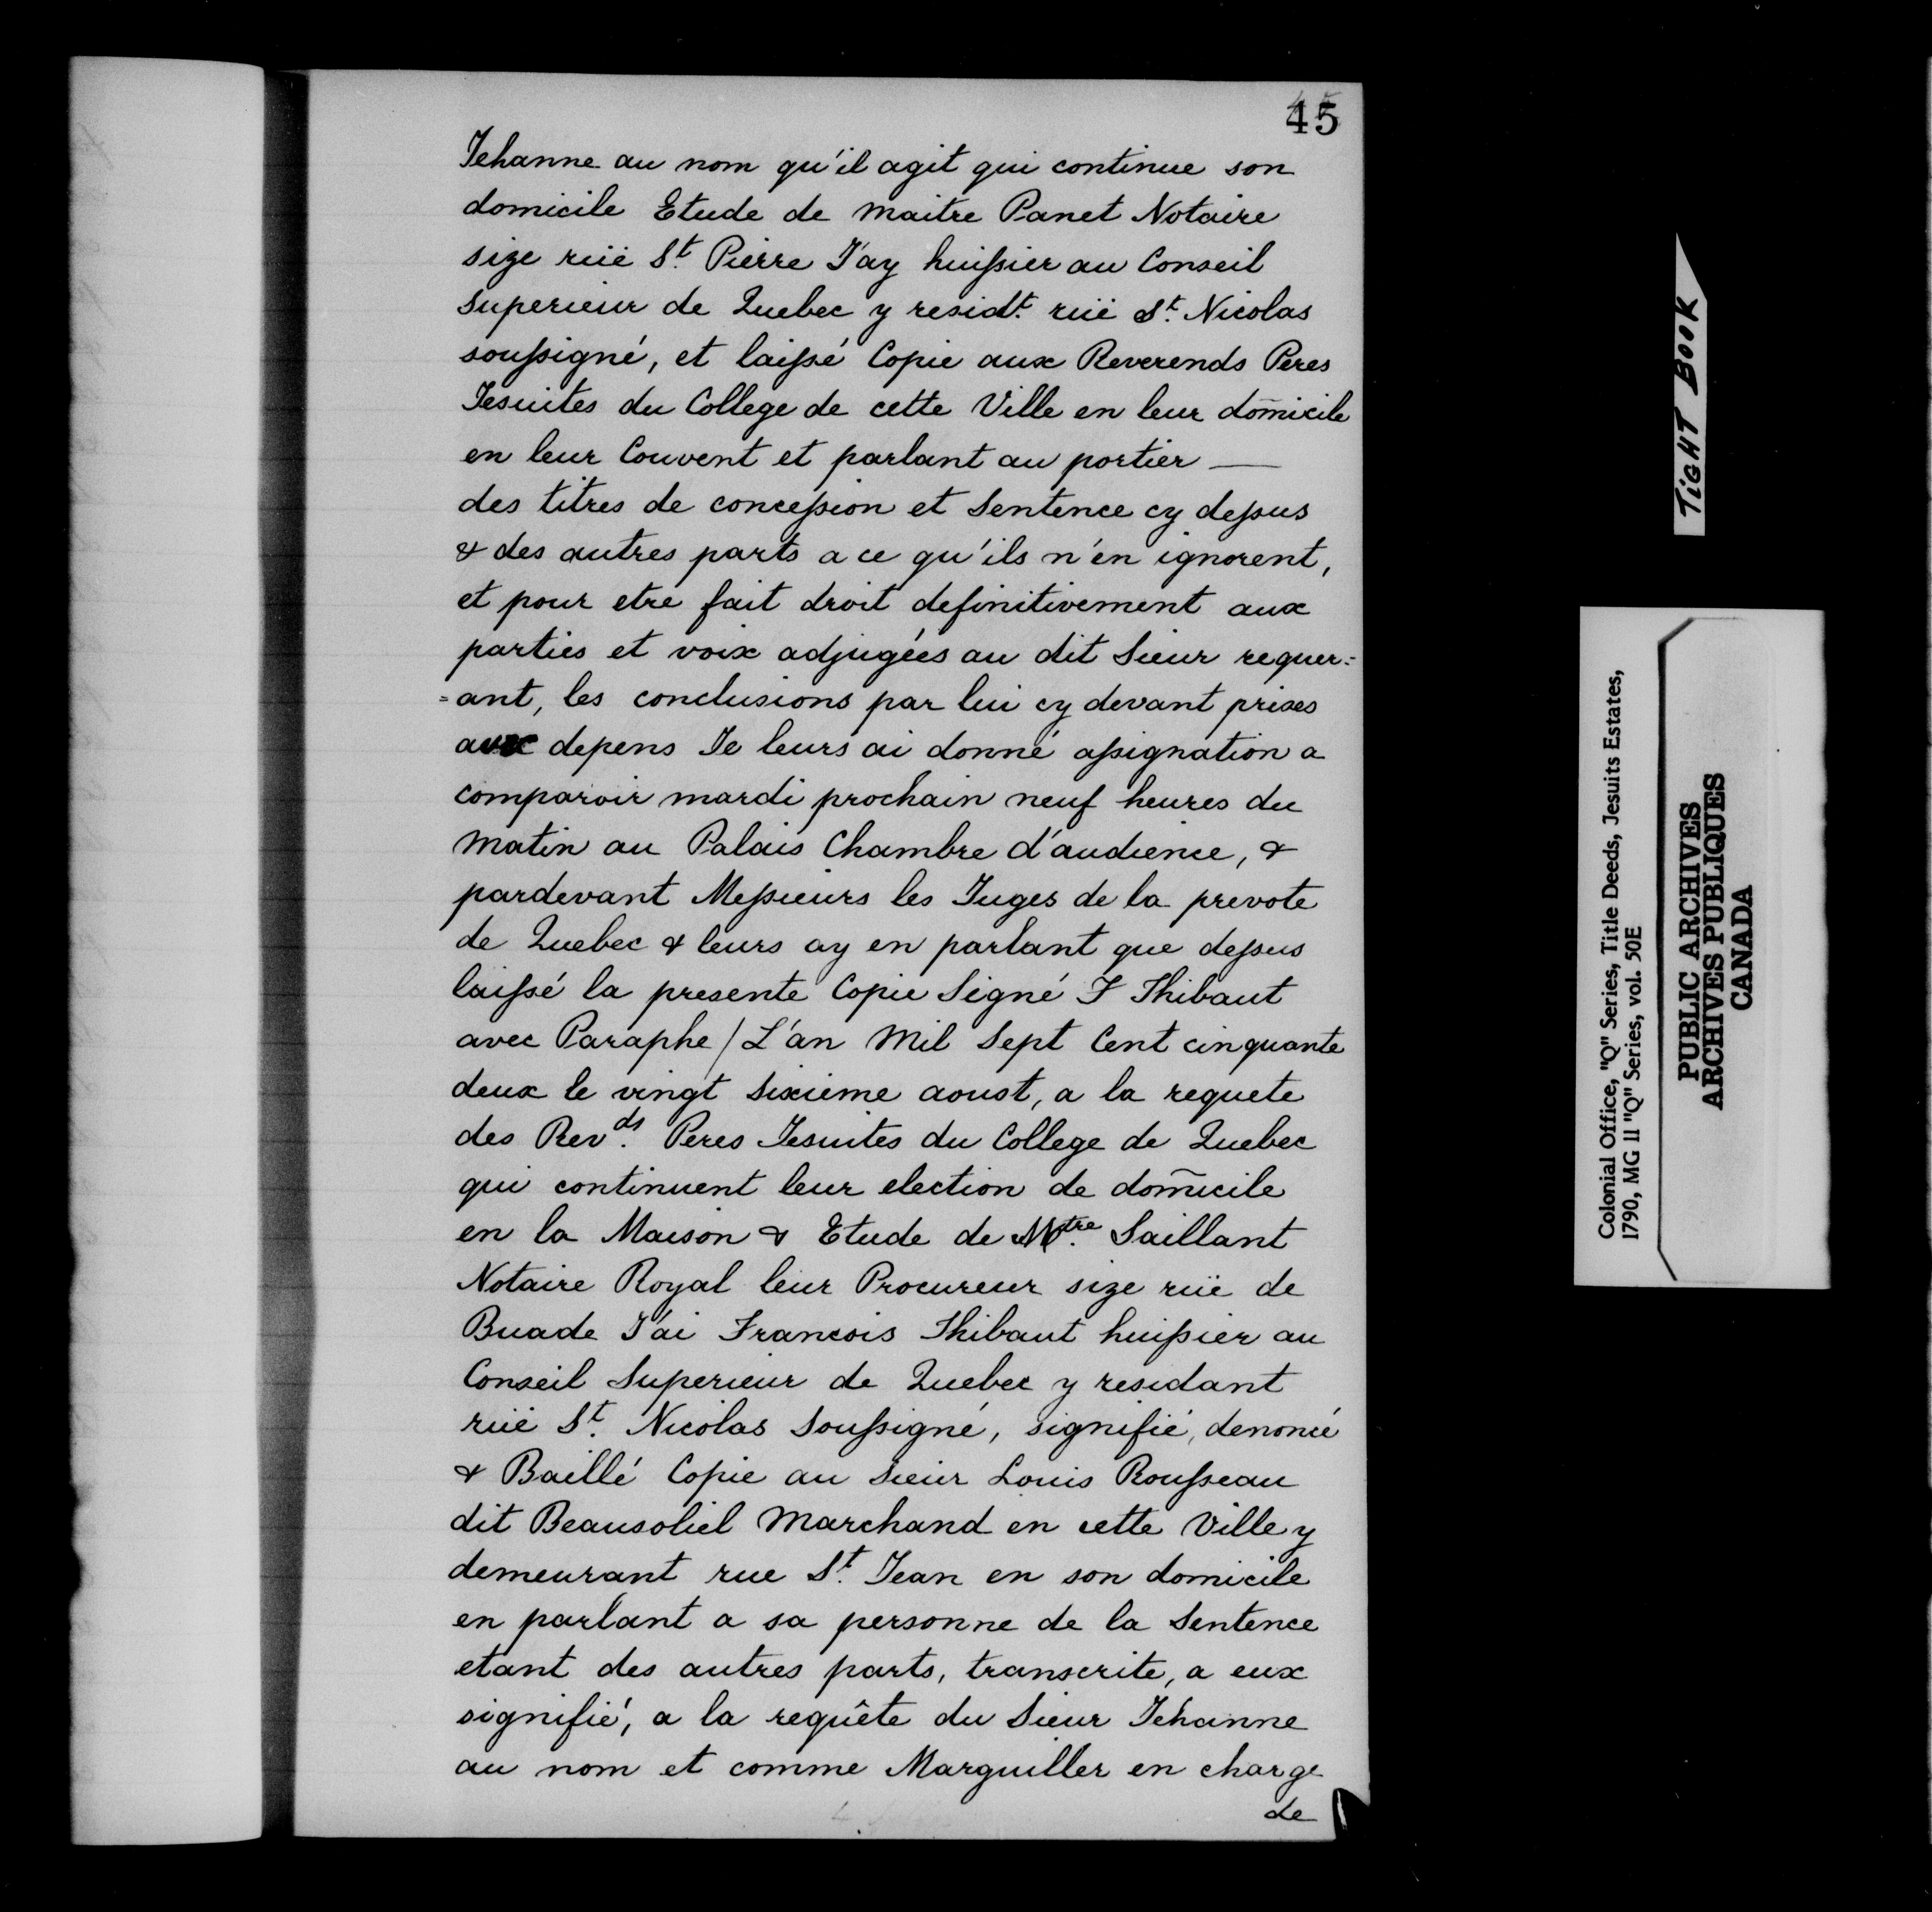 45
Jehanne au nom qu'il agit qui continue son
domicile Etude de maitre Panet Notaire
size rüe St. Pierre J'ay huissier au Conseil
superieur de Quebec y residt. rüe St. Nicolas
soussigné, et laissé Copie aux Reverends Peres
Jesuites du College de cette Ville en leur dom̄icile
en leur Couvent et parlant au portier —
des titres de concession et Sentence cy dessus
& des autres parts a ce qu'ils n'en ignorent,
et pour etre fait droit definitivement aux
parties et voix adjugées au dit Sieur requer=
=ant, les conclusions par lui cy devant prises
avec depens Je leurs ai donné assignation a
comparoir mardi prochain neuf heures du
matin au Palais Chambre d'audience, &
pardevant Messieurs les Juges de la prevote
de Quebec & leurs ay en parlant que dessus
laissé la presente Copie Signé F Thibaut
avec Paraphe / L'an Mil Sept Cent cinquante
deux le vingt sixieme aoust, a la requete
des Revds. Peres Jesuites du College de Quebec
qui continuent leur election de dom̄icile
en la Maison & Etude de Mtre. Saillant
Notaire Royal leur Procureur size rüe de
Buade J'ai Francois Thibaut huissier au
Conseil Superieur de Quebec y residant
rüe St. Nicolas Soussigné, signifié, denoncé
& Baillé Copie au Sieur Louis Rousseau
dit Beausoliel Marchand en cette Ville y
demeurant rue St. Jean en son domicile
en parlant a sa personne de la Sentence
etant des autres parts, transcrite, a eux
signifié, a la requête du Sieur Jehanne
au nom et comme Marguiller en charge
de
TIGHT BOOK
Colonial Office, "Q" Series, Title Deeds, Jesuits Estates,
1790, MG 11 "Q" Series, vol. 50E
PUBLIC ARCHIVES
ARCHIVES PUBLIQUES
CANADA